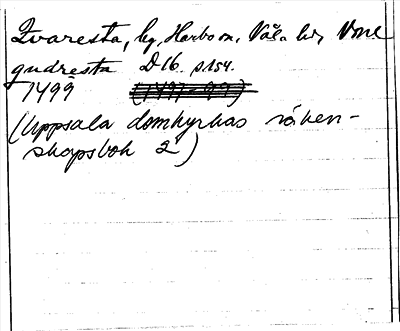 Kvaresta, by, Harbo sn, Våla hd, Uml
gudresta D 16 s 154.
1499 (1497-99)
(Uppsala domkyrkas räken-
skapsbok 2)